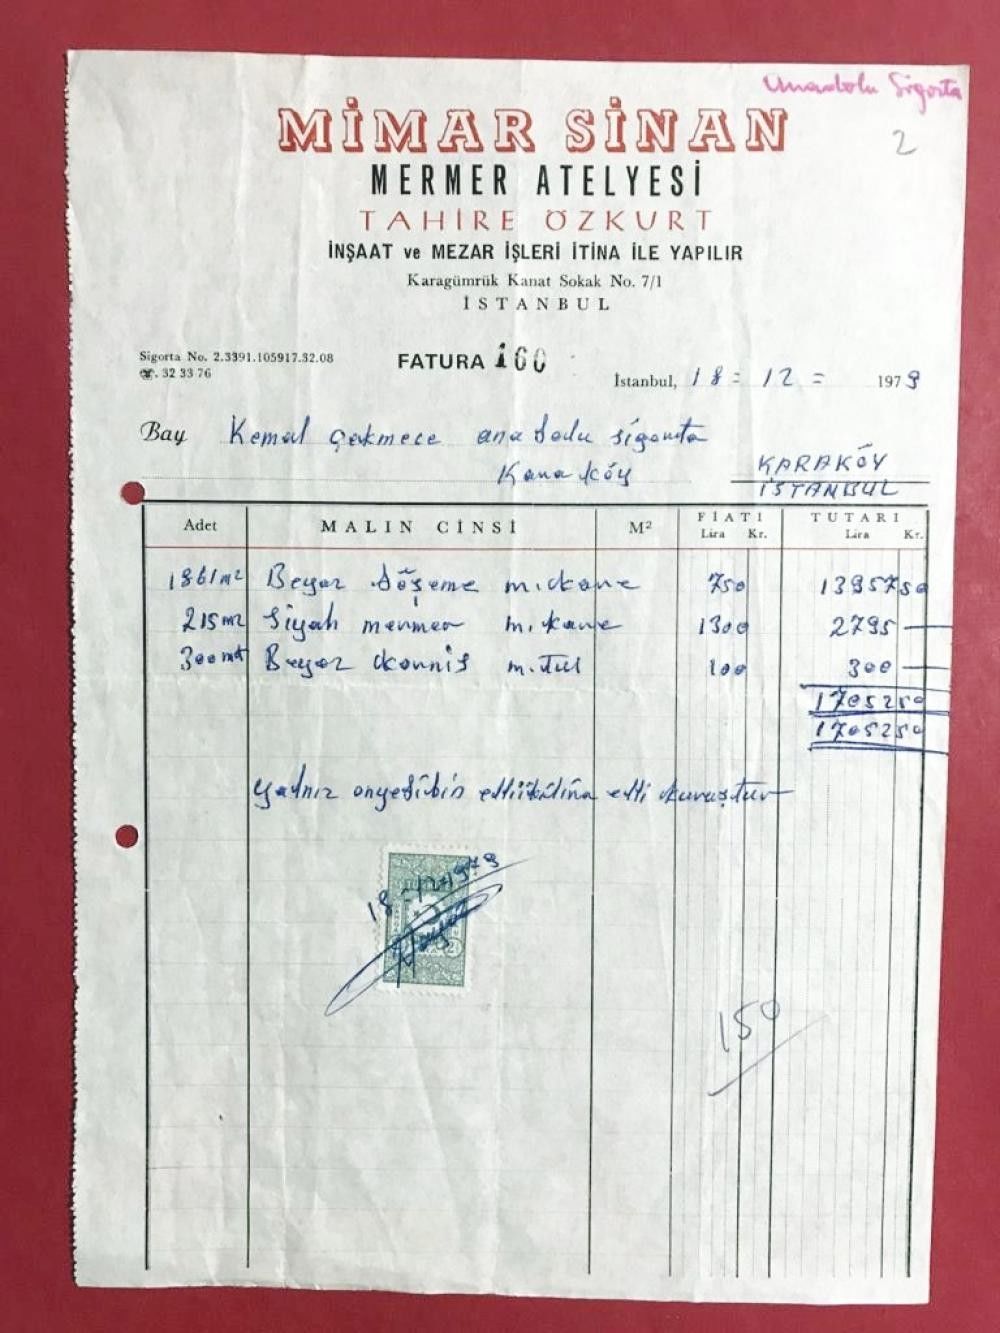 Anadolu Sigorta
2
MİMAR SİNAN
MERMER ATELYESİ
TAHİRE ÖZKURT
İNŞAAT ve MEZAR İŞLERİ İTİNA İLE YAPILIR
Karagümrük Kanat Sokak No. 7/1
İSTANBUL
Sigorta No. 2.3391.105917.32.08
☎. 32 33 76
FATURA 160
İstanbul, 18 = 12 = 1979
Bay Kemal Çekmece anadolu sigorta
Karaköy
KARAKÖY
İSTANBUL
Adet MALIN CİNSİ M² FİATI Lira Kr. TUTARI Lira Kr.
1861 m2 Beyaz döşeme m. kare 750 13957 50
215 m2 Siyah mermer m. kare 1300 2795 —
300 mt Beyaz kornis m. tul 100 300 —
17052 50
17052 50
Yalnız onyedibin elliikilira elli kuruştur
18-12-1979
150